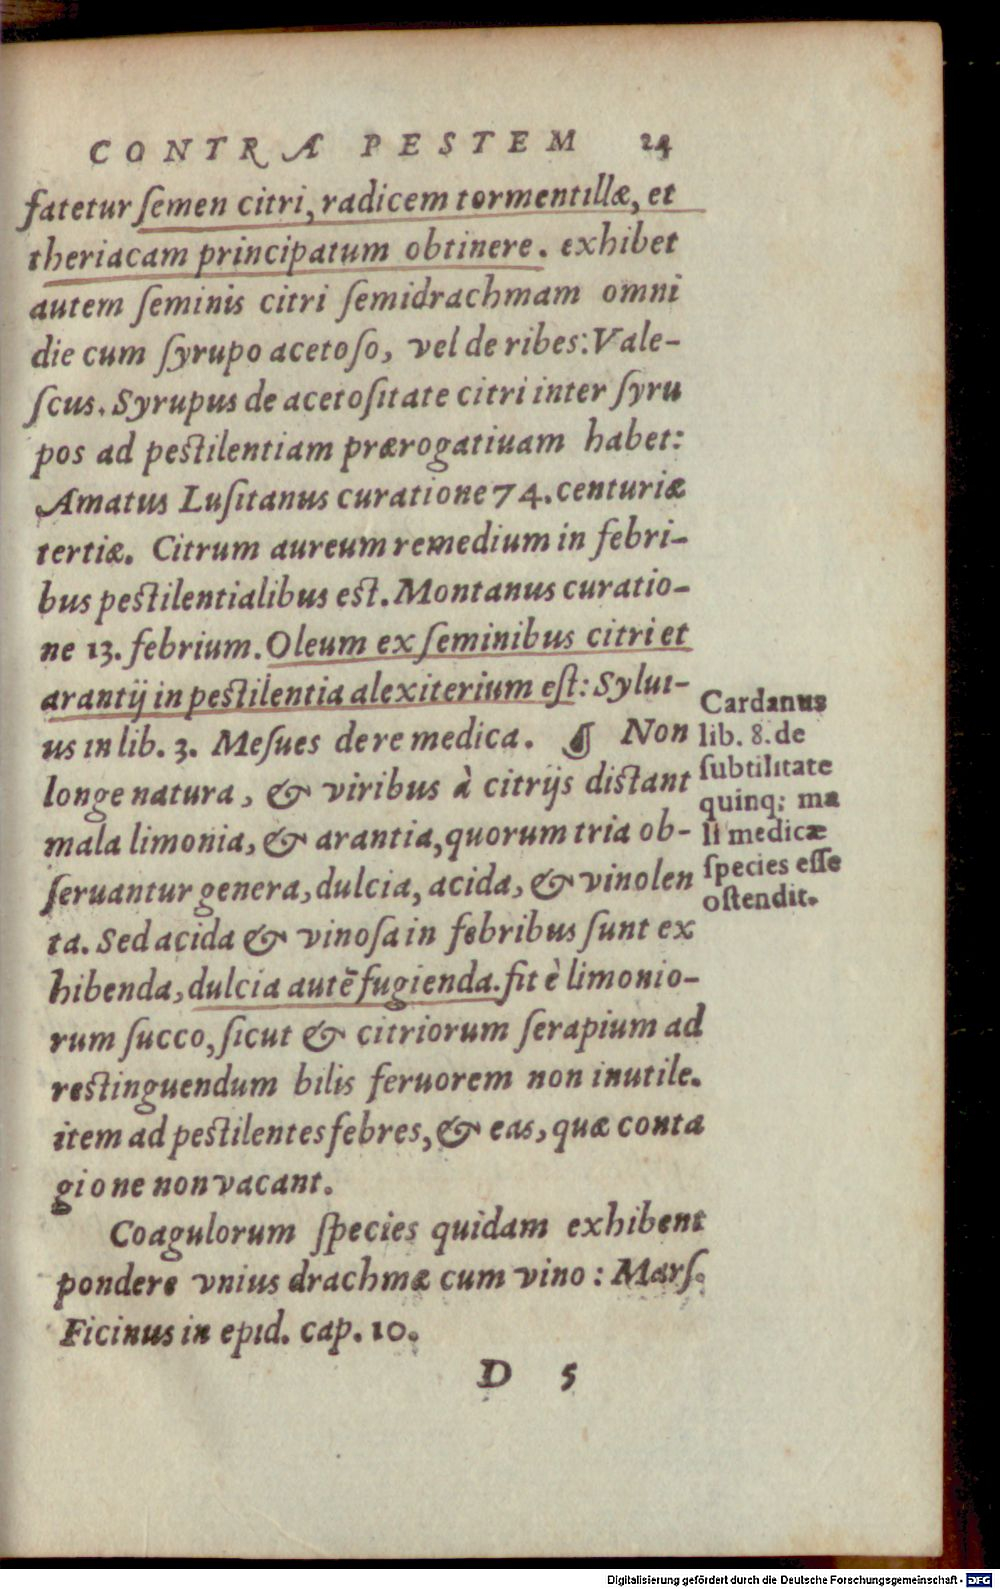 CONTRA PESTEM 24
fatetur ſemen citri, radicem tormentillæ, et
theriacam principatum obtinere. exhibet
autem ſeminis citri ſemidrachmam omni
die cum ſyrupo acetoſo, vel de ribes: Vale-
ſcus. Syrupus de acetoſitate citri inter ſyru
pos ad peſtilentiam prærogatiuam habet:
Amatus Luſitanus curatione 74. centuriæ
tertiæ. Citrum aureum remedium in febri-
bus peſtilentialibus eſt. Montanus curatio-
ne 13. febrium. Oleum ex ſeminibus citri et
arantij in peſtilentia alexiterium eſt: Sylui-
us in lib. 3. Meſues de re medica. ☙ Non
longe natura, & viribus à citrijs diſtant
mala limonia, & arantia, quorum tria ob-
ſeruantur genera, dulcia, acida, & vinolen
ta. Sed acida & vinoſa in febribus ſunt ex
hibenda, dulcia autē fugienda. fit è limonio-
rum ſucco, ſicut & citriorum ſerapium ad
reſtinguendum bilis feruorem non inutile.
item ad peſtilentes febres, & eas, quæ conta
gione non vacant.
Coagulorum ſpecies quidam exhibent
pondere vnius drachmæ cum vino: Marſ.
Ficinus in epid. cap. 10.
D 5
Cardanus
lib. 8. de
ſubtilitate
quinq; ma
li medicæ
ſpecies eſſe
oſtendit.
Digitalisierung gefördert durch die Deutsche Forschungsgemeinschaft - DFG